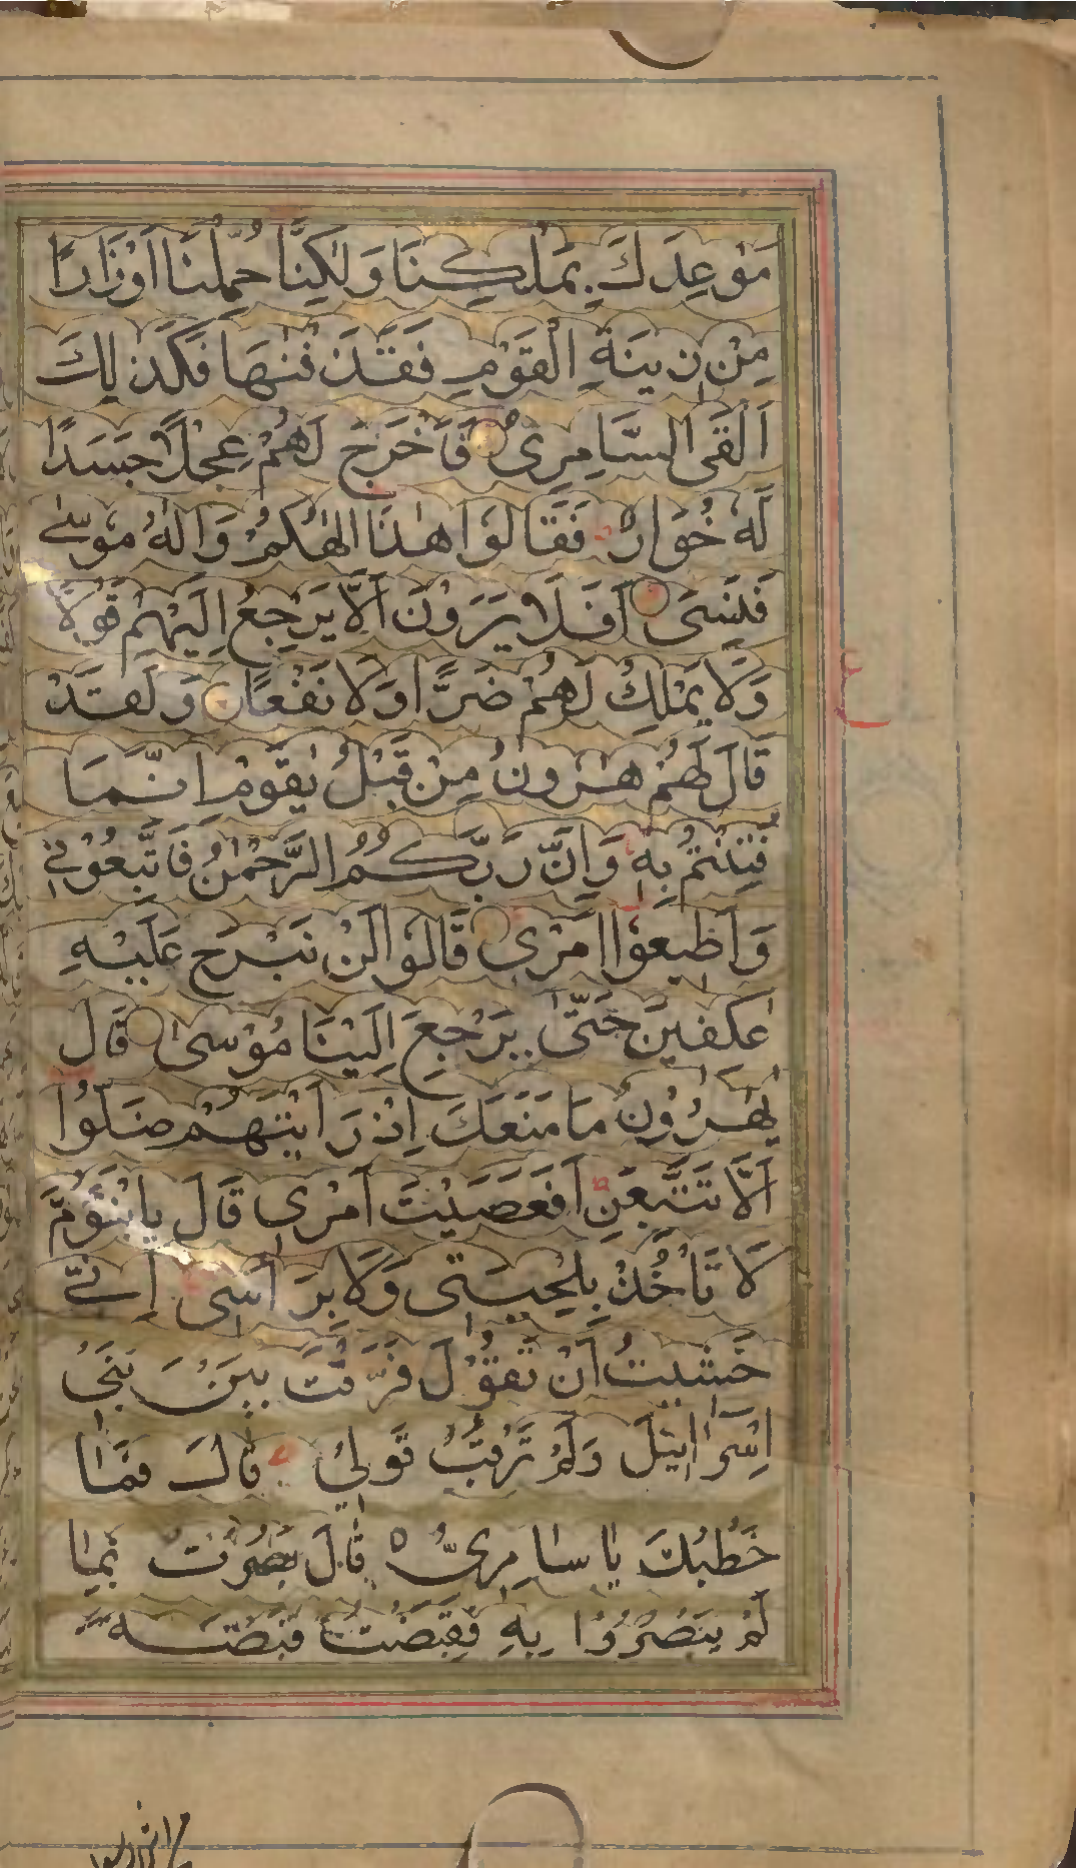 مَوْعِدَكَ بِمَلْكِنَا وَلٰكِنَّا حُمِّلْنَا اَوْزَارًا
مِنْ زِينَةِ الْقَوْمِ فَقَذَفْنٰهَا فَكَذٰلِكَ
اَلْقَى السَّامِرِىُّ فَاَخْرَجَ لَهُمْ عِجْلًا جَسَدًا
لَهٗ خُوَارٌ فَقَالُوْا هٰذَا اِلٰهُكُمْ وَاِلٰهُ مُوْسٰى
فَنَسِىَ اَفَلَا يَرَوْنَ اَلَّا يَرْجِعُ اِلَيْهِمْ قَوْلًا
وَلَا يَمْلِكُ لَهُمْ ضَرًّا وَلَا نَفْعًا وَلَقَدْ
قَالَ لَهُمْ هٰرُونُ مِنْ قَبْلُ يٰقَوْمِ اِنَّمَا
فُتِنْتُمْ بِهٖ وَاِنَّ رَبَّكُمُ الرَّحْمٰنُ فَاتَّبِعُوْنِى
وَاَطِيعُوْا اَمْرِى قَالُوْا لَنْ نَبْرَحَ عَلَيْهِ
عٰكِفِينَ حَتّٰى يَرْجِعَ اِلَيْنَا مُوْسٰى قَالَ
يٰهٰرُوْنُ مَا مَنَعَكَ اِذْ رَاَيْتَهُمْ ضَلُّوْا
اَلَّا تَتَّبِعَنِ اَفَعَصَيْتَ اَمْرِى قَالَ يَابْنَؤُمَّ
لَا تَاْخُذْ بِلِحْيَتِى وَلَا بِرَاْسِى اِنِّى
خَشِيتُ اَنْ تَقُوْلَ فَرَّقْتَ بَيْنَ بَنِى
اِسْرَاٰئِيْلَ وَلَمْ تَرْقُبْ قَوْلِى قَالَ فَمَا
خَطْبُكَ يَا سَامِرِىُّ قَالَ بَصُرْتُ بِمَا
لَمْ يَبْصُرُوْا بِهِ فَقَبَضْتُ قَبْضَةً